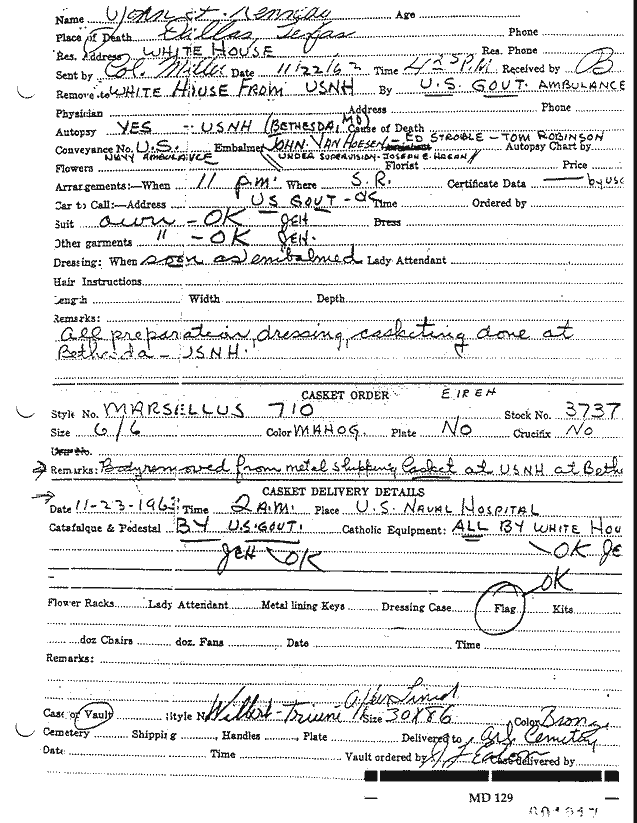 Name John F. Kennedy Age
Place of Death Dallas, Texas Phone
Res. Address WHITE HOUSE Res. Phone
Sent by Col. Miller Date 11/22/63 Time 4:25 P.M. Received by B
Remove to WHITE HOUSE FROM USNH By U.S. GOVT. AMBULANCE
Physician Address Phone
Autopsy YES - USNH (BETHESDA, MD) Cause of Death
Conveyance No. U.S. Embalmer JOHN VAN HOESEN - ED STROBLE - TOM ROBINSON Autopsy Chart by
NAVY AMBULANCE UNDER SUPERVISION - JOSEPH E. HAGAN
Flowers Florist Price
Arrangements:—When 11 P.M. Where S.R. Certificate Data by USG
Car to Call:—Address US GOVT - OK Time Ordered by
Suit own - OK JEH Dress
Other garments " - OK JEH.
Dressing: When soon as embalmed Lady Attendant
Hair Instructions
Length Width Depth
Remarks:
All preparation, dressing, casketing done at
Bethesda - USNH.
CASKET ORDER
Style No. MARSELLUS 710 Stock No. 3737
Size 6/6 Color MAHOG. Plate NO Crucifix NO
Remarks: Body removed from metal shipping casket at USNH at Beth
CASKET DELIVERY DETAILS
Date 11-23-1963 Time 2 A.M. Place U.S. NAVAL HOSPITAL
Catafalque & Pedestal BY U.S. GOVT. Catholic Equipment: ALL BY WHITE HOU
JEH OK OK JE
OK
Flower Racks Lady Attendant Metal lining Keys Dressing Case Flag Kits
doz Chairs doz. Fans Date Time
Remarks:
Case or Vault Style No Wilbert-Triune Size 30X86 Color Bronz
Cemetery Shipping Handles Plate Delivered to Arl. Cemetery
Date Time Vault ordered by Case delivered by
MD 129